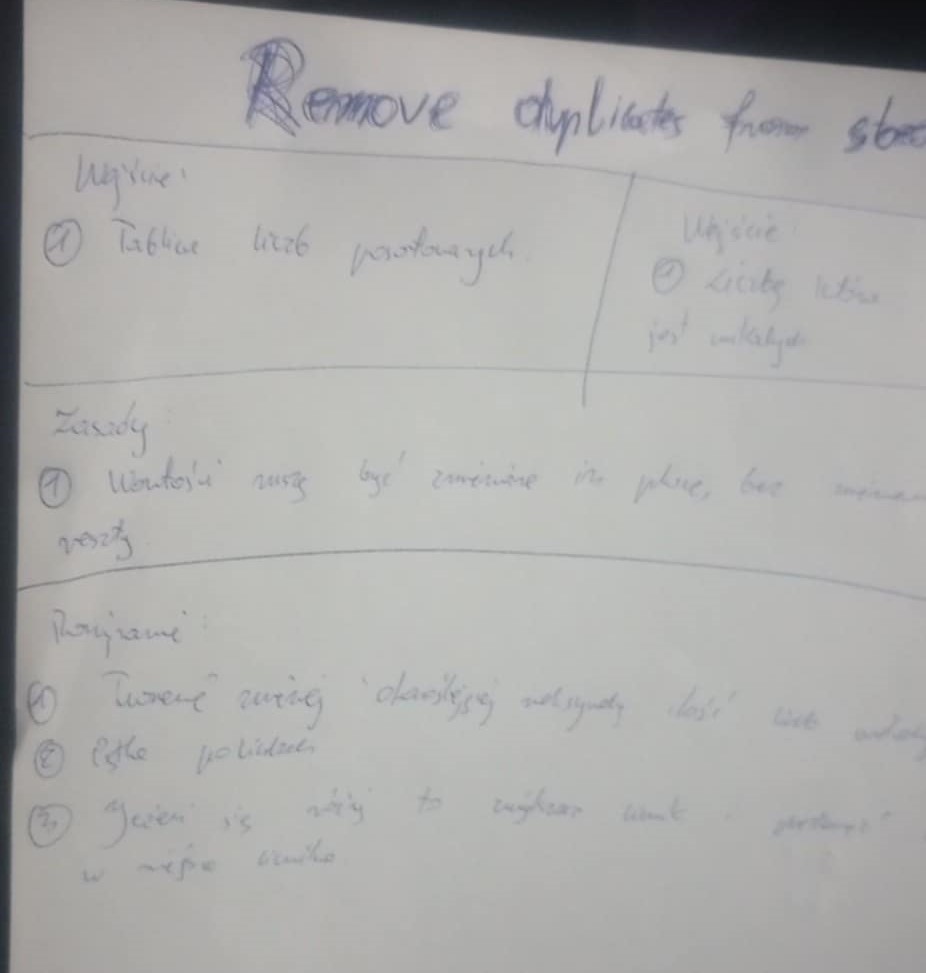 Remove duplicates from
Wejście:
① Tablica liczb posortowanych.
Wyjście:
① Liczbę która
jest unikalnych
Zasady:
① Wartości muszą być zmienione in place, bez
reszty
Rozwiązanie:
① Tworzenie zmiennej określającej ilość liczb
② Pętla po liczbach
③ Jeżeli się różni to zwiększam licznik i
w miejsce licznika